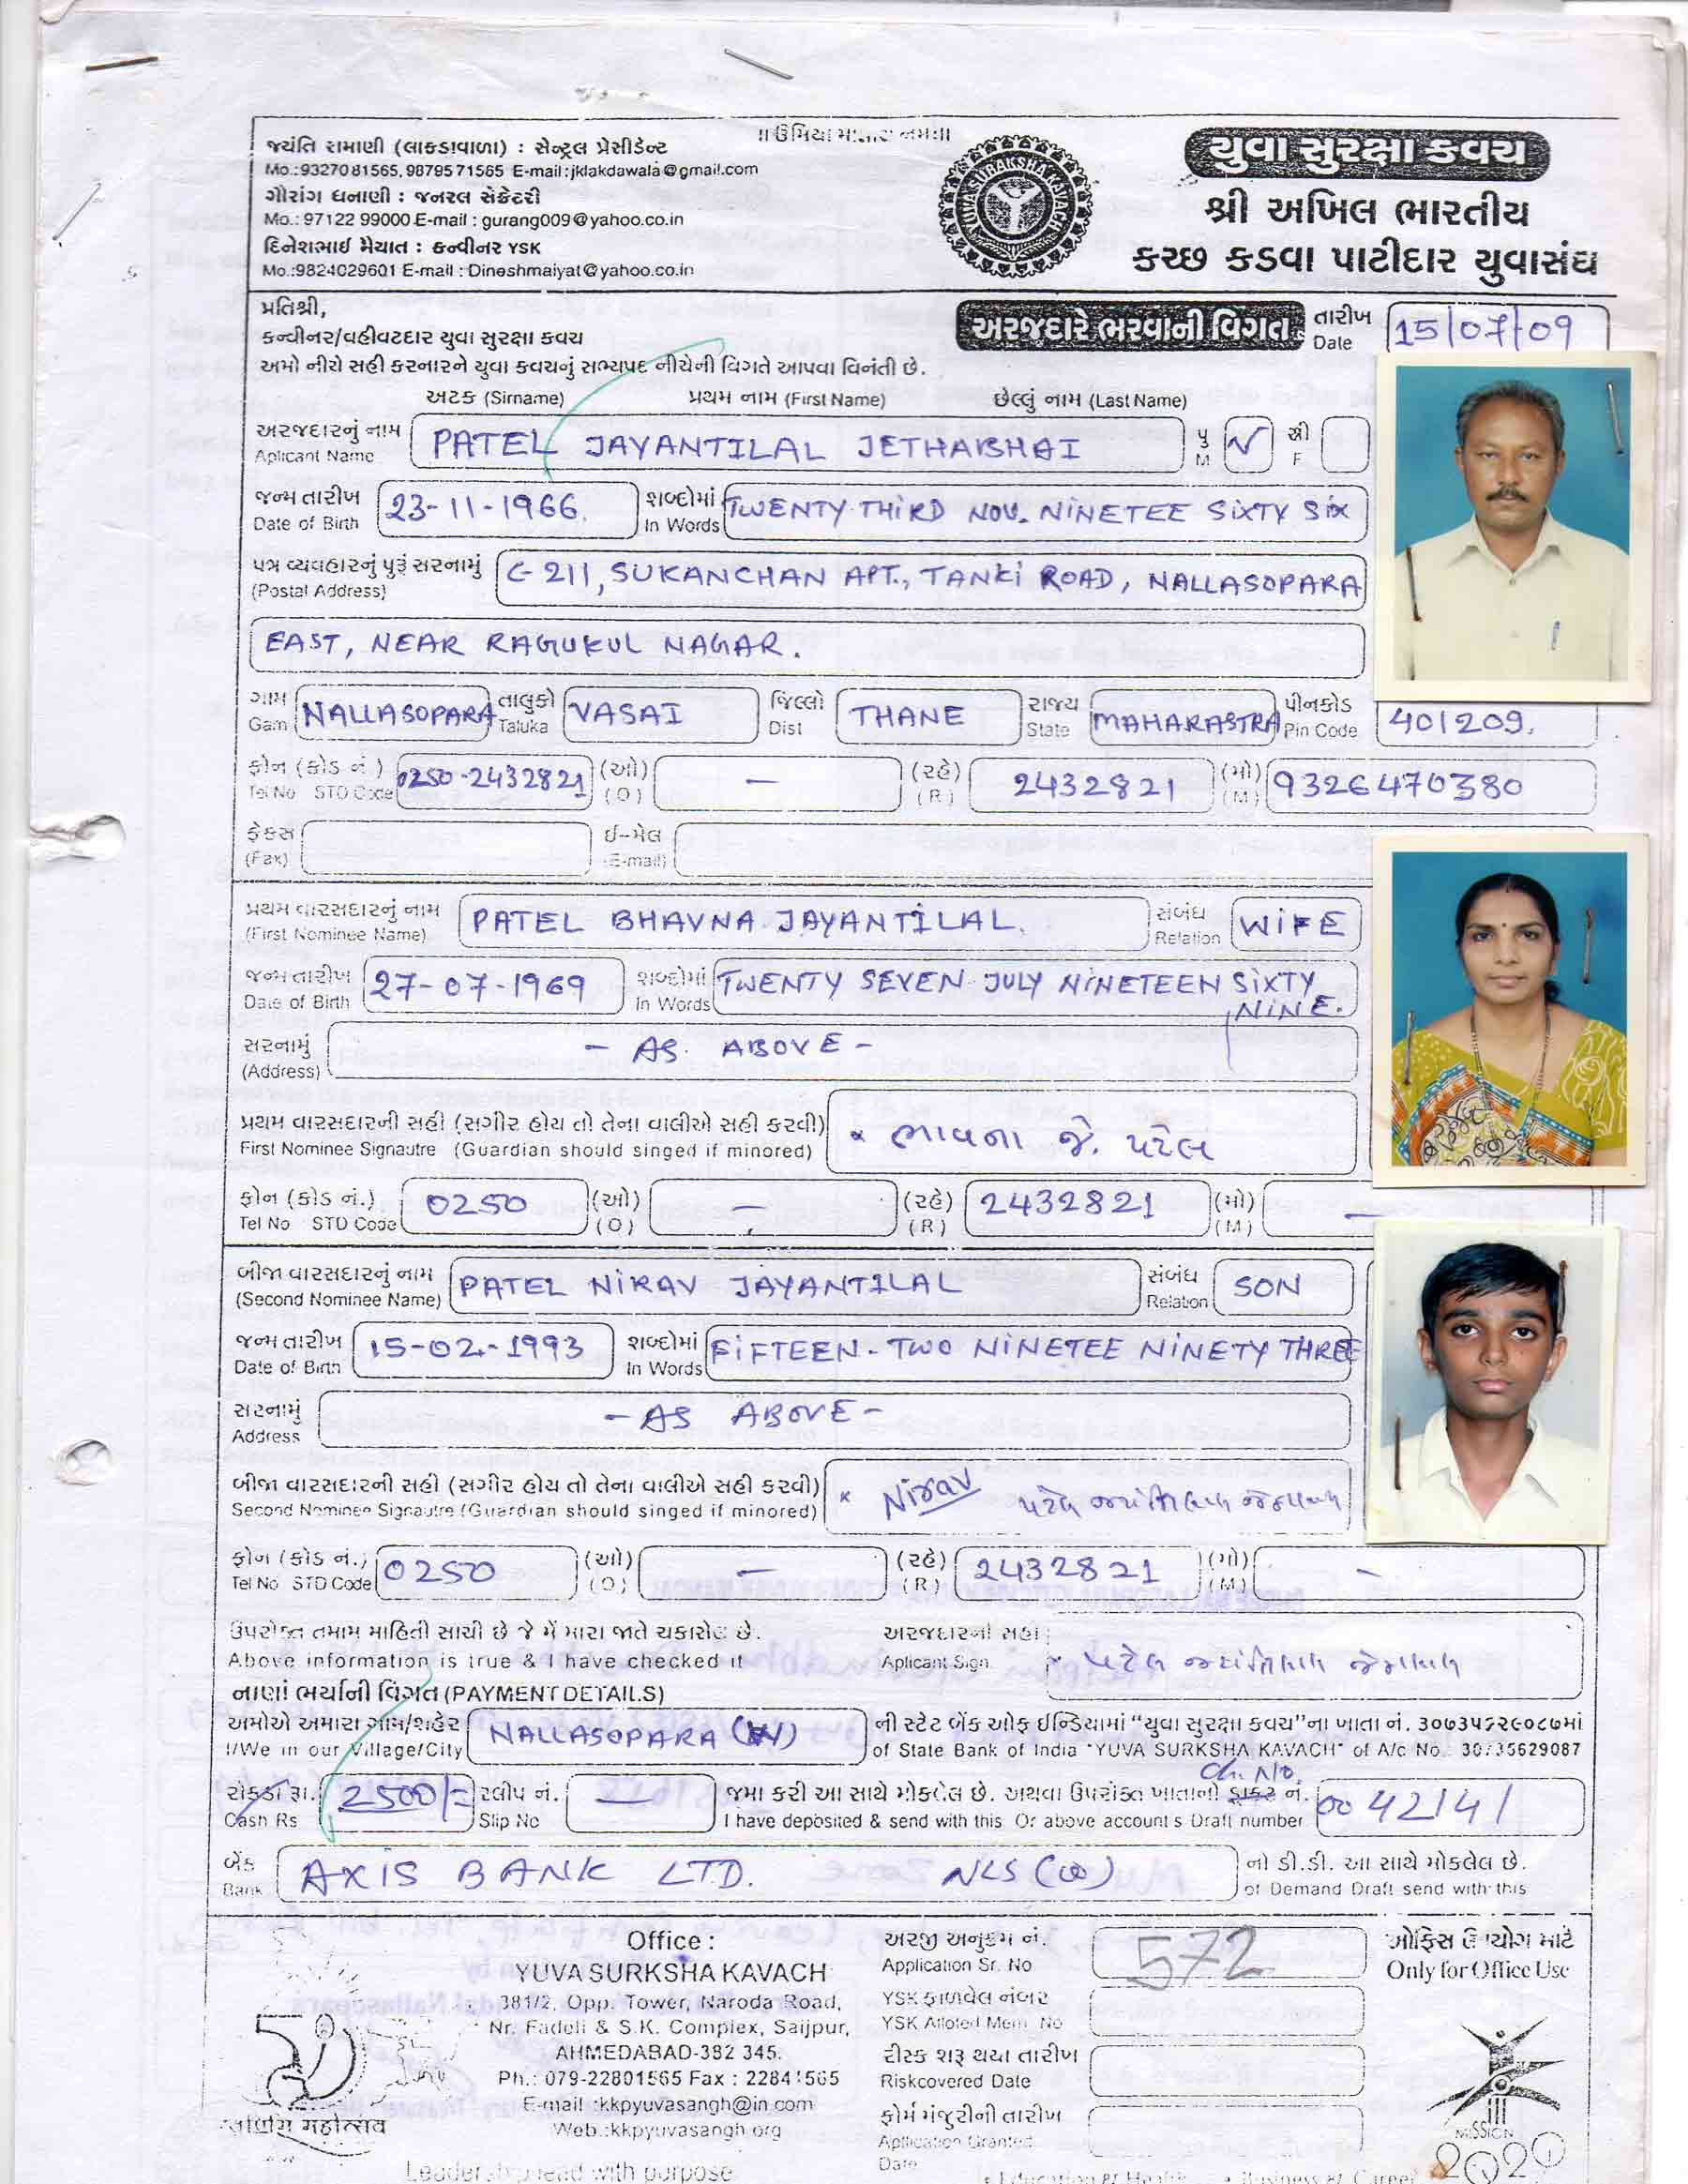 ॥ ઉમિયા માતાય નમઃ॥
જયંતિ રામાણી (લાકડાવાળા) : સેન્ટ્રલ પ્રેસીડેન્ટ
Mo.:9327081565, 9879571565 E-mail:jklakdawala@gmail.com
ગૌરાંગ ધનાણી : જનરલ સેક્રેટરી
Mo.: 97122 99000 E-mail : gurang009@yahoo.co.in
દિનેશભાઈ મૈયાત : કન્વીનર YSK
Mo.:9824029601 E-mail : Dineshmaiyat@yahoo.co.in
YUVA SURAKSHA KAVACH
યુવા સુરક્ષા કવચ
શ્રી અખિલ ભારતીય
કચ્છ કડવા પાટીદાર યુવાસંઘ
પ્રતિશ્રી,
કન્વીનર/વહીવટદાર યુવા સુરક્ષા કવચ
અરજદારે ભરવાની વિગત
તારીખ Date 15/07/09
અમો નીચે સહી કરનારને યુવા કવચનું સભ્યપદ નીચેની વિગતે આપવા વિનંતી છે.
અટક (Sirname) પ્રથમ નામ (First Name) છેલ્લું નામ (Last Name)
અરજદારનું નામ Aplicant Name PATEL JAYANTILAL JETHABHAI પુ M ✓ સ્ત્રી F
જન્મ તારીખ Date of Birth 23-11-1966. શબ્દોમાં In Words TWENTY THIRD NOV. NINETEE SIXTY SIX
પત્ર વ્યવહારનું પુરૂં સરનામું (Postal Address) C-211, SUKANCHAN APT., TANKI ROAD, NALLASOPARA
EAST, NEAR RAGUKUL NAGAR.
ગામ Gam NALLASOPARA તાલુકો Taluka VASAI જિલ્લો Dist THANE રાજ્ય State MAHARASTRA પીનકોડ Pin Code 401209.
ફોન (કોડ નં.) Tel No STD Code 0250-2432821 (ઓ) (O) — (રહે) (R) 2432821 (મો) (M) 9326470380
ફેક્સ (Fax) ઈ-મેલ (E-mail)
પ્રથમ વારસદારનું નામ (First Nominee Name) PATEL BHAVNA JAYANTILAL. સંબંધ Relation WIFE
જન્મ તારીખ Date of Birth 27-07-1969 શબ્દોમાં In Words TWENTY SEVEN JULY NINETEEN SIXTY NINE.
સરનામું (Address) - AS ABOVE -
પ્રથમ વારસદારની સહી (સગીર હોય તો તેના વાલીએ સહી કરવી) × ભાવના જે. પટેલ
First Nominee Signautre (Guardian should singed if minored)
ફોન (કોડ નં.) Tel No STD Code 0250 (ઓ) (O) — (રહે) (R) 2432821 (મો) (M) —
બીજા વારસદારનું નામ (Second Nominee Name) PATEL NIRAV JAYANTILAL સંબંધ Relation SON
જન્મ તારીખ Date of Birth 15-02-1993 શબ્દોમાં In Words FIFTEEN - TWO NINETEE NINETY THREE
સરનામું Address - AS ABOVE -
બીજા વારસદારની સહી (સગીર હોય તો તેના વાલીએ સહી કરવી) × Nirav પટેલ જયંતિલાલ
Second Nominee Signautre (Guardian should singed if minored)
ફોન (કોડ નં.) Tel No STD Code 0250 (ઓ) (O) — (રહે) (R) 2432821 (મો) (M) -
ઉપરોક્ત તમામ માહિતી સાચી છે જે મેં મારા જાતે ચકાસેલ છે. અરજદારની સહી
Above information is true & I have checked it Aplicant Sign × પટેલ જયંતિલાલ
નાણાં ભર્યાની વિગત (PAYMENT DETAILS)
અમોએ અમારા ગામ/શહેર NALLASOPARA (W) ની સ્ટેટ બેંક ઓફ ઈન્ડિયામાં "યુવા સુરક્ષા કવચ"ના ખાતા નં. ૩૦૭૩૫૬૨૯૦૮૭માં
I/We in our Village/City of State Bank of India "YUVA SURKSHA KAVACH" of A/c No. 30735629087
Ch. No.
રોકડા રૂા. 2500/= સ્લીપ નં. — જમા કરી આ સાથે મોકલેલ છે. અથવા ઉપરોક્ત ખાતાનો ડ્રાફ્ટ નં. 0042141
Cash Rs Slip No I have deposited & send with this Or above account s Draft number
બેંક Bank AXIS BANK LTD. NLS (W) નો ડી.ડી. આ સાથે મોકલેલ છે.
of Demand Draft send with this
Office :
YUVA SURKSHA KAVACH
381/2, Opp. Tower, Naroda Road,
Nr. Fadeli & S.K. Complex, Saijpur,
AHMEDABAD-382 345.
Ph.: 079-22801565 Fax : 22841565
E-mail :kkpyuvasangh@in.com
Web.:kkpyuvasangh.org
महोत्सव
અરજી અનુક્રમ નં. Application Sr. No 572
YSK ફાળવેલ નંબર YSK Alloted Mem. No
રીસ્ક શરૂ થયા તારીખ Riskcovered Date
ફોર્મ મંજુરીની તારીખ Application Granted Date
ઓફિસ ઉપયોગ માટે
Only for Office Use
MISSION
2020
Leadership lead with purpose
• Education & Health • Business & Career